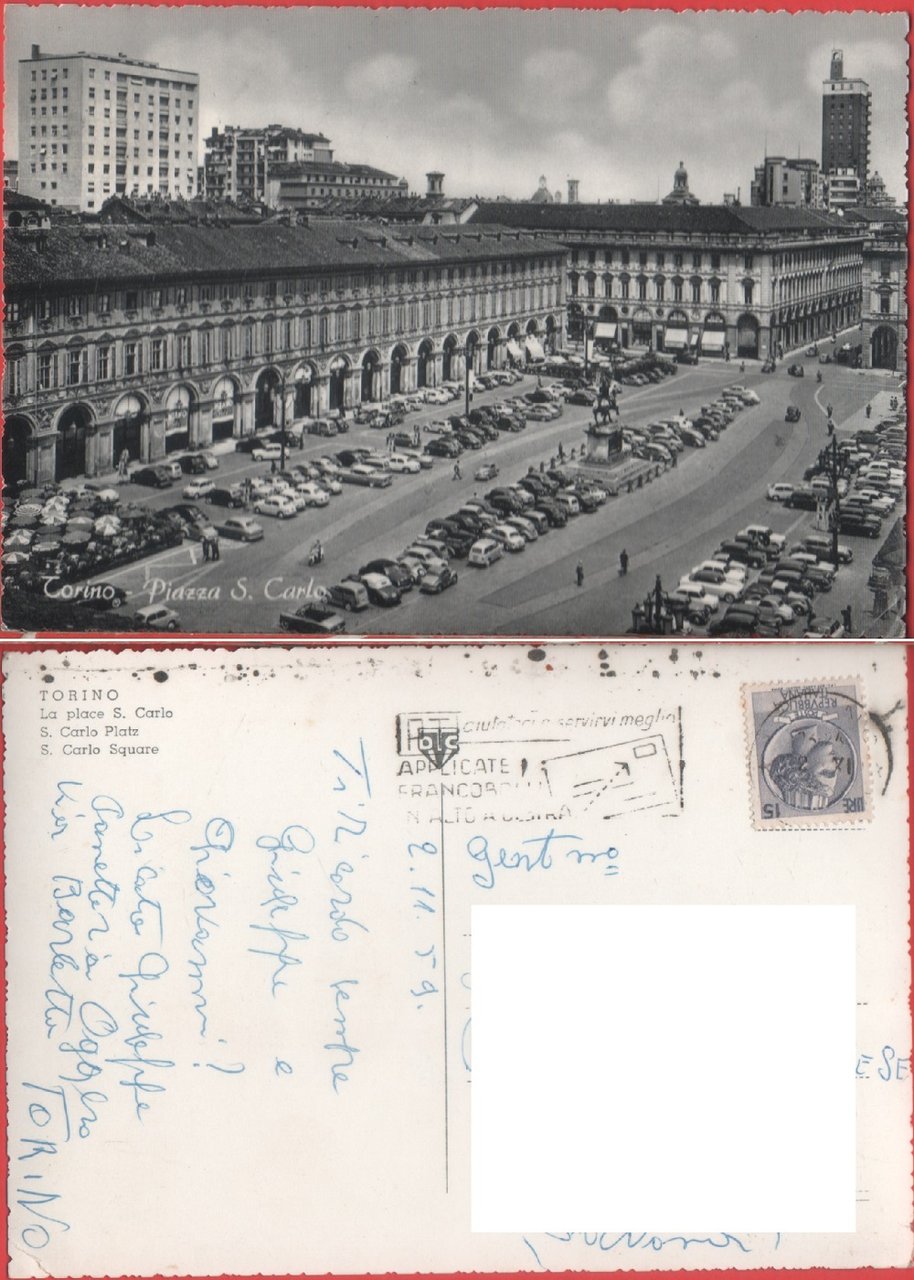 Torino - Piazza S. Carlo
TORINO
La place S. Carlo
S. Carlo Platz
S. Carlo Square
aiutateci a servirvi meglio
APPLICATE I
FRANCOBOLLI
IN ALTO A DESTRA
POSTE
REPVBBLICA
ITALIANA
LIRE 15
2.11.59.
Ti ricordo sempre
Giuseppe e
Giovanni?
Licato Giuseppe
Panetteria Oggero
Via Barletta TORINO
Gent mo
ESE
(Savona)